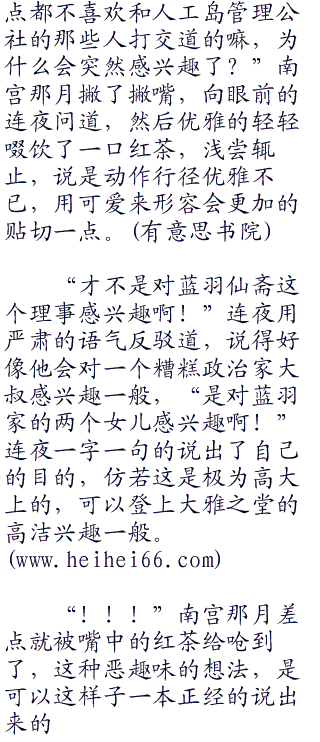 点都不喜欢和人工岛管理公
社的那些人打交道的嘛，为
什么会突然感兴趣了？”南
宫那月撇了撇嘴，向眼前的
连夜问道，然后优雅的轻轻
啜饮了一口红茶，浅尝辄
止，说是动作行径优雅不
已，用可爱来形容会更加的
贴切一点。(有意思书院)
“才不是对蓝羽仙斋这
个理事感兴趣啊！”连夜用
严肃的语气反驳道，说得好
像他会对一个糟糕政治家大
叔感兴趣一般，“是对蓝羽
家的两个女儿感兴趣啊！”
连夜一字一句的说出了自己
的目的，仿若这是极为高大
上的，可以登上大雅之堂的
高洁兴趣一般。
(www.heihei66.com)
“！！！”南宫那月差
点就被嘴中的红茶给呛到
了，这种恶趣味的想法，是
可以这样子一本正经的说出
来的